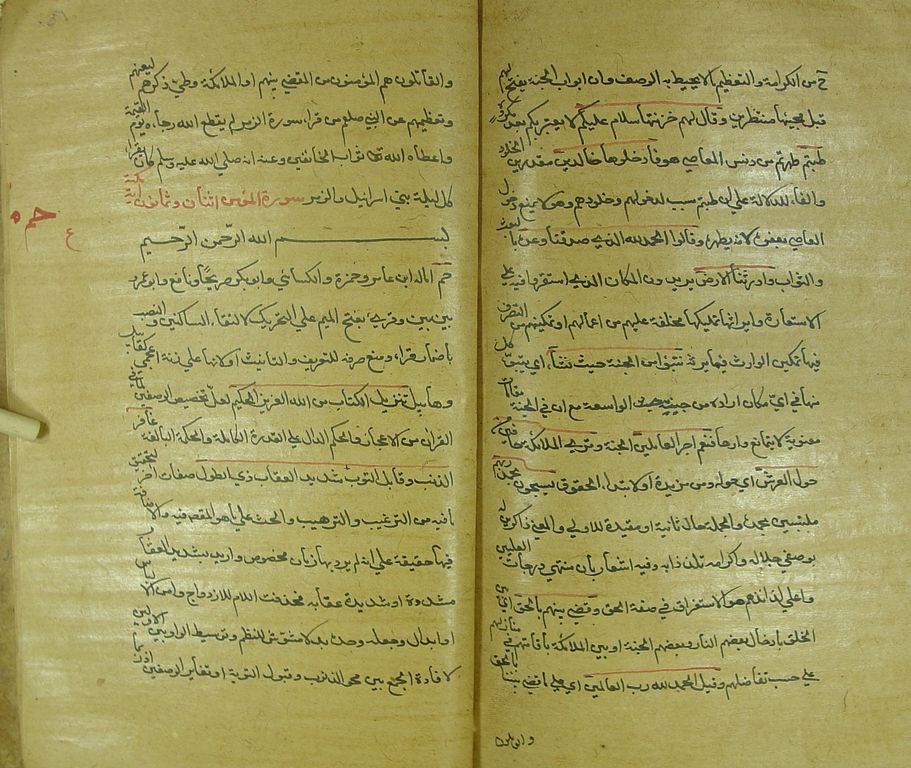 ح من الكرامة والتعظيم ما لا يحيط به الوصف وان ابواب الجنة يفتح لهم
قبل مجيئهم منتظرين وقال لهم خزنتها سلام عليكم لا يعتريكم بعد مكروه
طبتم طهرتم من دنس المعاصي فادخلوها خالدين مقدرين الخلود
والفاء للدلالة على ان طيبتم سبب لدخولهم وخلودهم وهو لا يمنع دخول
العاصي بعفوه لانه يطهره وقالوا الحمد لله الذي صدقنا وعده بالبعث
والثواب واورثنا الارض يريدون المكان الذي استقروا فيه على
الاستعارة وايراثها تمليكها مخلفة عليهم من اعمالهم او تمكينهم من التصرف
فيها تمكين الوارث فيما يرثه نتبوأ من الجنة حيث نشاء اي يتبوء كل
منا في اي مكان اراده من جنته الواسعة مع ان في الجنة مقامات
معنوية لا يتمانع واردوها فنعم اجر العاملين الجنة وترى الملائكة حافين من
حول العرش اي حوله ومن مزيدة او لابتداء الحفوف يسبحون بحمد ربهم
ملتبسين بحمده والجملة حال ثانية او مقيدة للاولى والمعنى ذاكرين له
بوصفي جلاله وكرامه تلذذا به وفيه اشعار بان منتهى درجات العليين
واعلى لذائذهم هو الاستغراق في صفة الحق وقضى بينهم بالحق اي بين
الخلق بادخال بعضهم النار وبعضهم الجنة او بين الملائكة باقامتهم في منازلهم
على حسب تفاضلهم وقيل الحمد لله رب العالمين اي على ما قضى بيننا بالحق
والقائلون
والقائلون هم المؤمنون من المقضي بينهم او الملائكة وطي ذكرهم لتعينهم
وتعظيمهم عن النبي صلعم من قرا سورة الزمر لم يقطع الله رجاءه يوم القيمة
واعطاه الله تعالى ثواب الخائفين وعنه انه صلى الله عليه وسلم كان يقرأ
كل ليلة بني اسرائيل والزمر سورة المؤمن مكية اثنان وثمانون آية
بسم الله الرحمن الرحيم
حم اماله ابن عامر وحمزة والكسائي وابو بكر صريحا ونافع وابو عمرو
بين بين وقرئ بفتح الميم على التحريك لالتقاء الساكنين والنصب
باضمار اقرا ومنع صرفه للتعريف والتانيث او لانها على زنة اعجمي كقابيل
وهابيل تنزيل الكتاب من الله العزيز العليم لعل تخصيص الوصفين لما في
القران من الاعجاز والحكم الدال على القدرة الكاملة والحكمة البالغة غافر
الذنب وقابل التوب شديد العقاب ذي الطول صفات اخر لتحقيق
ما فيه من الترغيب والترهيب والحث على ما هو المقص فيه والاضافة
فيها حقيقة على انه لم يرد بها زمان مخصوص واريد بشديد العقاب
مشدده او شديد عقابه فحذفت اللام للازدواج وامن الالباس
او ابدال وجعله وحده بدلا مشوش للنظم وتوسيط الواو بين الاولين
لافادة الجمع بين محو الذنوب وقبول التوبة او تغاير الوصفين اذ ربما
حم
ع